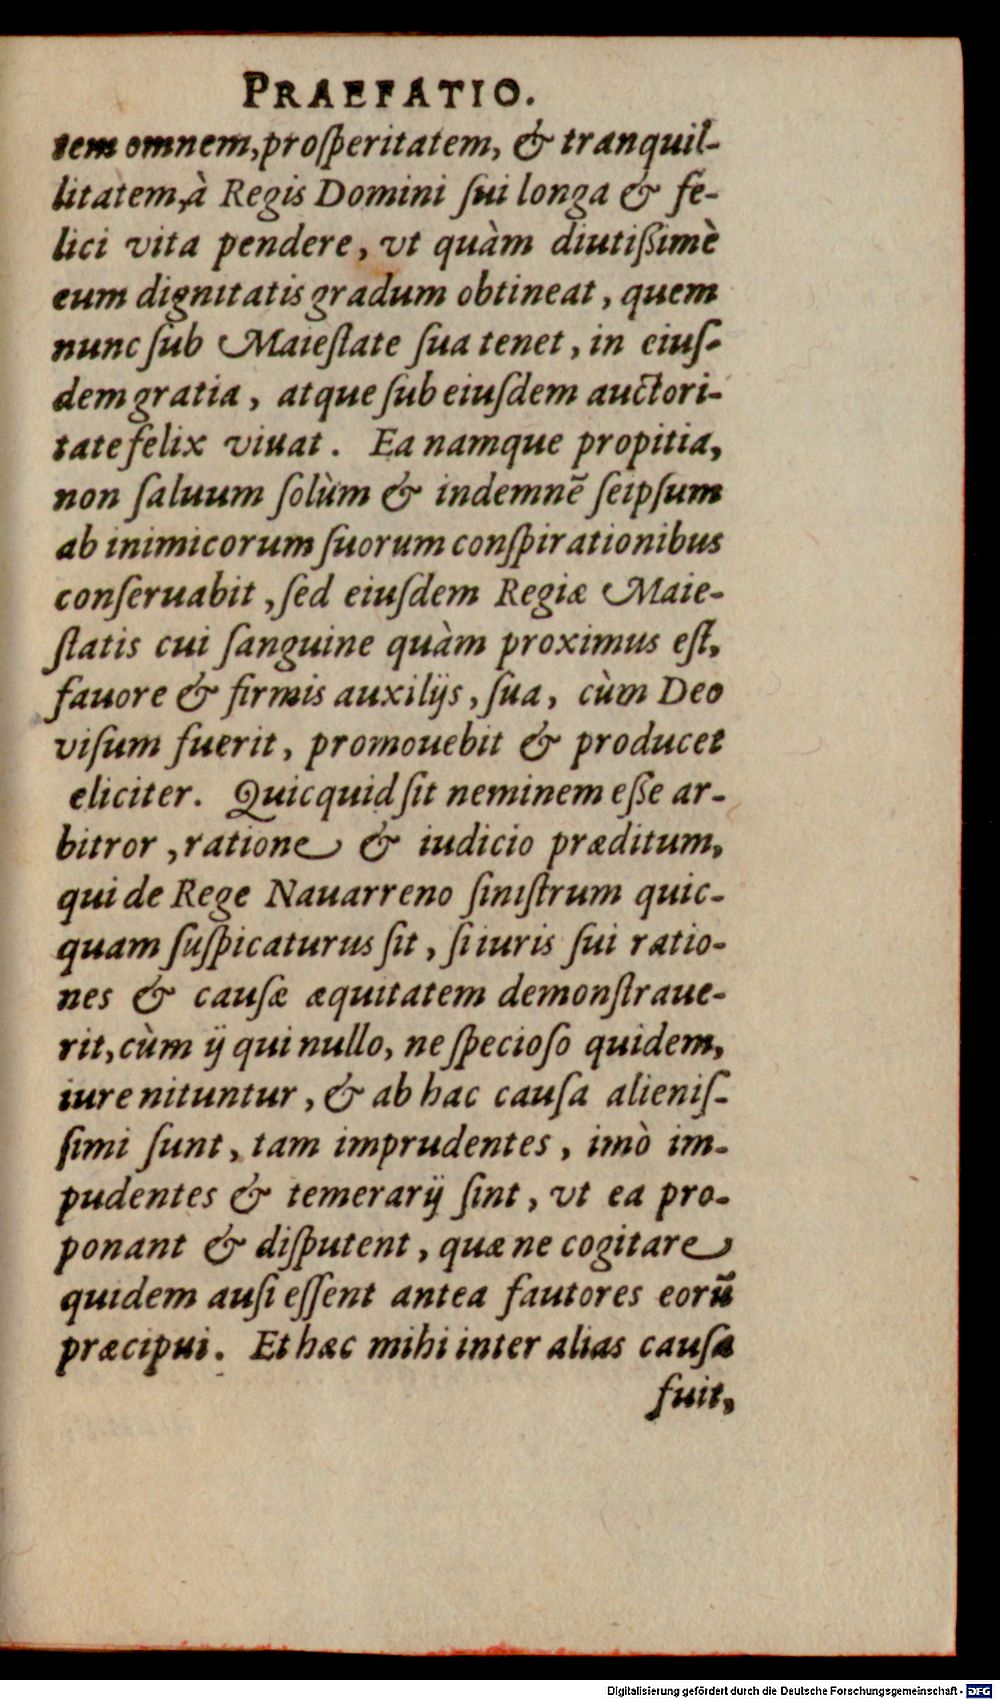 PRAEFATIO.
tem omnem, proſperitatem, & tranquil-
litatem, à Regis Domini ſui longa & fe-
lici vita pendere, vt quàm diutißimè
eum dignitatis gradum obtineat, quem
nunc ſub Maieſtate ſua tenet, in eiuſ-
dem gratia, atque ſub eiuſdem auctori-
tate felix viuat. Ea namque propitia,
non ſaluum ſolùm & indemnē ſeipſum
ab inimicorum ſuorum conſpirationibus
conſeruabit, ſed eiuſdem Regiæ Maie-
ſtatis cui ſanguine quàm proximus eſt,
fauore & firmis auxilijs, ſua, cùm Deo
viſum fuerit, promouebit & producet
eliciter. Quicquid ſit neminem eße ar-
bitror, ratione & iudicio præditum,
qui de Rege Nauarreno ſiniſtrum quic-
quam ſuſpicaturus ſit, ſi iuris ſui ratio-
nes & cauſæ æquitatem demonſtraue-
rit, cùm ij qui nullo, ne ſpecioſo quidem,
iure nituntur, & ab hac cauſa alieniſ-
ſimi ſunt, tam imprudentes, imò im-
pudentes & temerarij ſint, vt ea pro-
ponant & diſputent, quæ ne cogitare
quidem auſi eſſent antea fautores eorū
præcipui. Et hæc mihi inter alias cauſa
fuit,
Digitalisierung gefördert durch die Deutsche Forschungsgemeinschaft - DFG